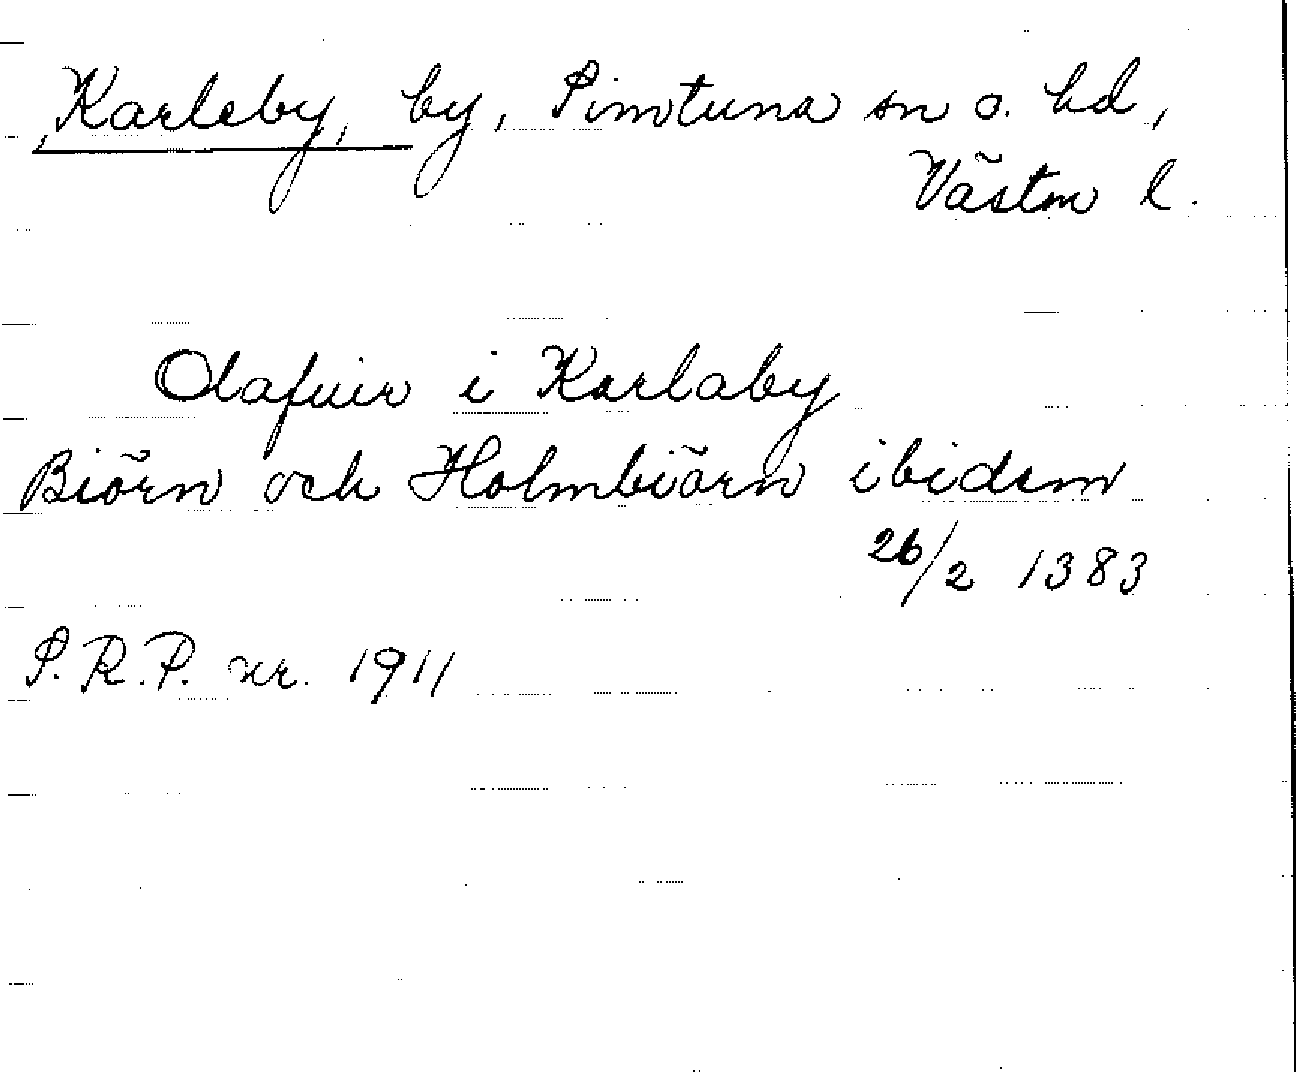 Karleby, by, Simtuna sn o. hd,
Västm l.
Olafuir i Karlaby
Biörn och Holmbiörn ibidem
26/2 1383
S.R.P. nr. 1911